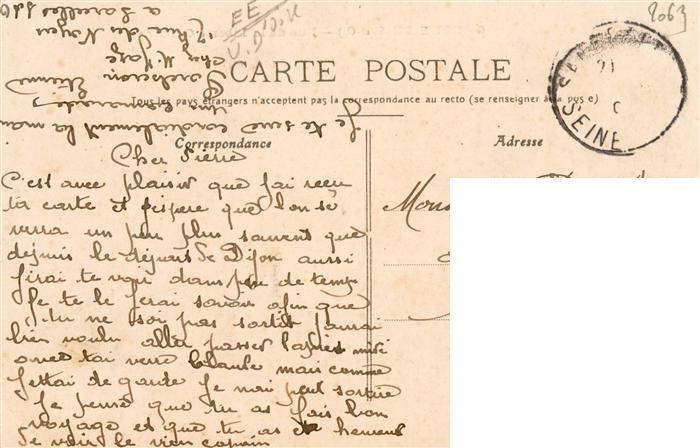 2063
EE
CARTE POSTALE
Tous les pays étrangers n'acceptent pas la correspondance au recto (se renseigner à la poste)
Correspondance
Adresse
SEINE
21
Cher Pierre
C'est avec plaisir que j'ai reçu
ta carte et j'espère que l'on se
verra un peu plus souvent que
depuis le départ de Dijon aussi
j'irai te voir dans peu de temps
Je te le ferai savoir afin que
tu ne soi pas sortit j'aurai
bien voulu aller passer l'après midi
avec toi verre Claude mais comme
j'ettai de garde je n'ai peut sortire
Je pense que tu as fais bon
voyage et que tu as et heureux
de voir le vieu copain
Je te serre cordialement la main
Ton camarade
Etienne
Chez M.
7 Rue du Noyer
à
Mons